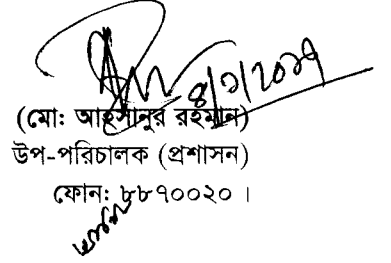 (মো: আহসানুর রহমান)
উপ-পরিচালক (প্রশাসন)
ফোন: ৮৮৭০০২০ ।